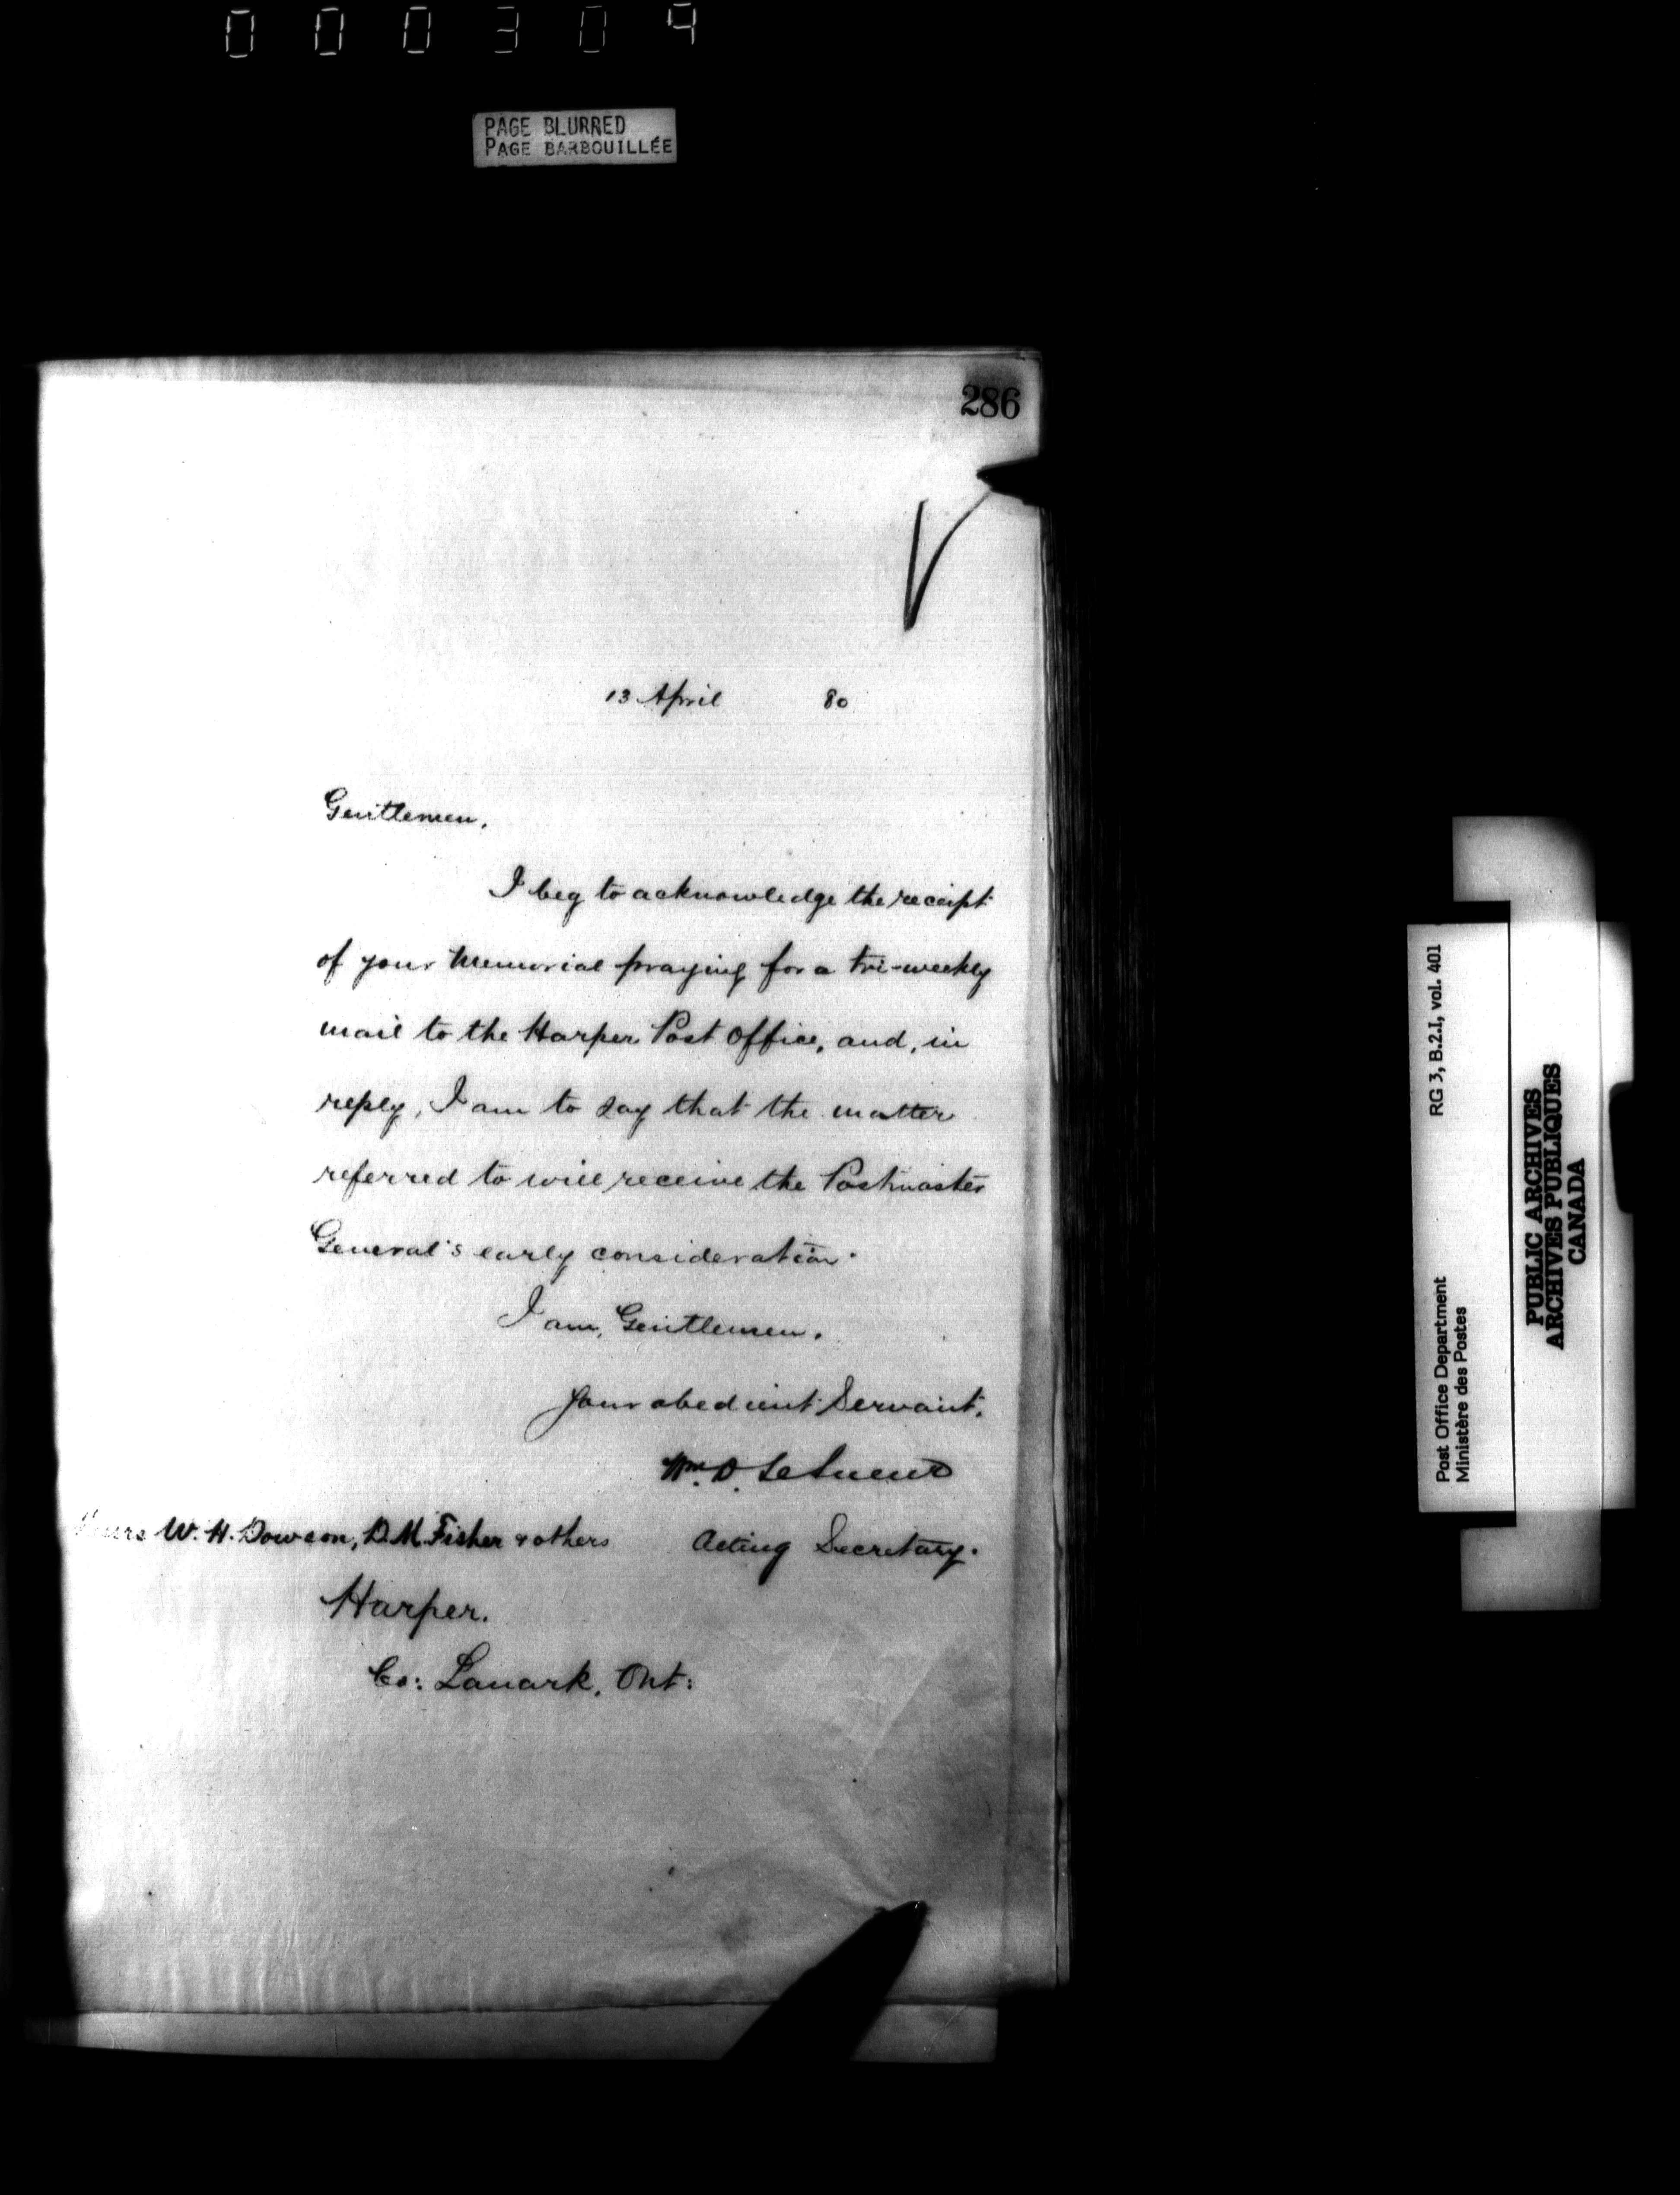 000304
PAGE BLURRED
PAGE BARBOUILLÉE
286
13 April 80
Gentlemen,
I beg to acknowledge the receipt
of your Memorial praying for a tri-weekly
mail to the Harper Post Office, and, in
reply, I am to say that the matter
referred to will receive the Postmaster
General's early consideration.
I am, Gentlemen,
Your obedient Servant,
Wm. D. LeSueur
W. H. Dowson, D. M. Fisher & others
Acting Secretary.
Harper.
Co: Lanark, Ont:
Post Office Department RG 3, B.2.1, vol. 401
Ministère des Postes
PUBLIC ARCHIVES
ARCHIVES PUBLIQUES
CANADA